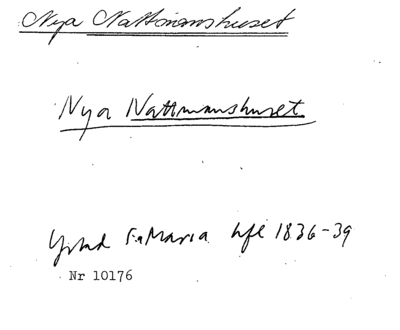 Nya Nattmanshuset
Nya Nattmanshuset
Ystad S:a Maria hfl 1836-39
Nr 10176